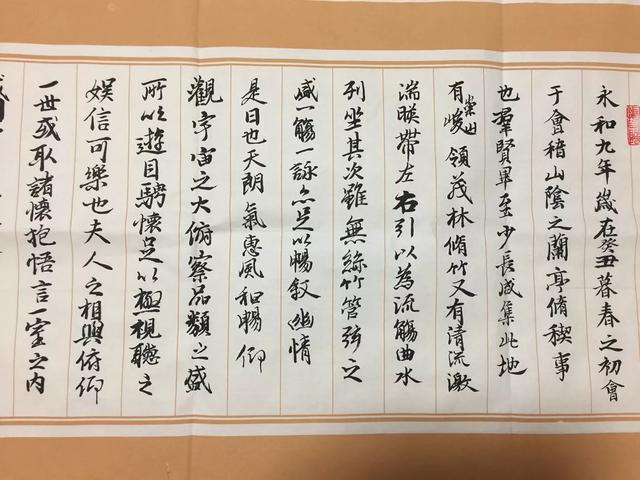 永和九年歲在癸丑暮春之初會
于會稽山陰之蘭亭脩稧事
也羣賢畢至少長咸集此地
有崇山峻領茂林脩竹又有清流激
湍暎帶左右引以為流觴曲水
列坐其次雖無絲竹管弦之
盛一觴一詠亦足以暢敘幽情
是日也天朗氣惠風和暢仰
觀宇宙之大俯察品類之盛
所以遊目騁懷足以極視聽之
娛信可樂也夫人之相與俯仰
一世或取諸懷抱悟言一室之內